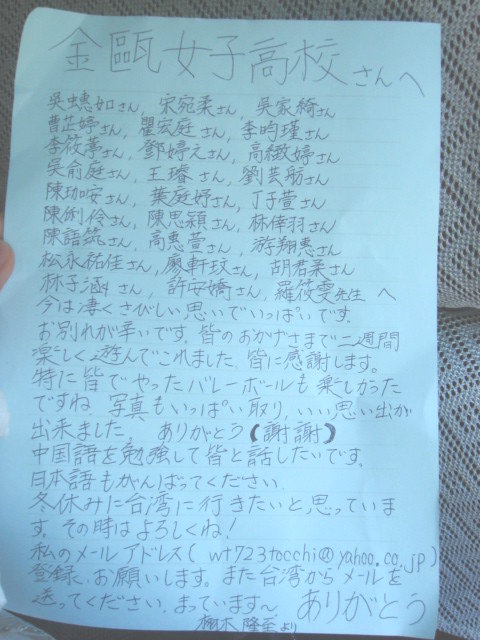 金甌女子高校さんへ
吳蟪如さん, 宋宛柔さん, 吳家綺さん
曹芷婷さん, 瞿宏庭さん, 李昀瑾さん
李筱葶さん, 鄧婷えさん, 高緻婷さん
吳俞庭さん, 王璿さん, 劉芸舫さん
陳珈安さん, 葉庭妤さん, 丁子萱さん
陳俐伶さん, 陳思穎さん, 林倖羽さん
陳語筑さん, 高惠萱さん, 游翔惠さん
松永祐佳さん, 廖軒玟さん, 胡君柔さん
林子涵さん, 許安嬌さん, 羅筱雯先生 へ
今は凄くさびしい思いでいっぱいです。
お別れが辛いです。皆のおかげさまで二週間
楽しく遊んでこれました。皆に感謝します。
特に皆でやったバレーボールも楽しかった
ですね。写真もいっぱい取り、いい思い出が
出来ました。 ありがとう(謝謝)
中国語を勉強して皆と話したいです。
日本語もがんばってください。
冬休みに台湾に行きたいと思っていま
す。その時はよろしくね!
私のメールアドレス( wt723tocchi@yahoo.co.jp)
登録、お願いします。また台湾からメールを
送ってください。まっています〜 ありがとう
栃木 隆至より